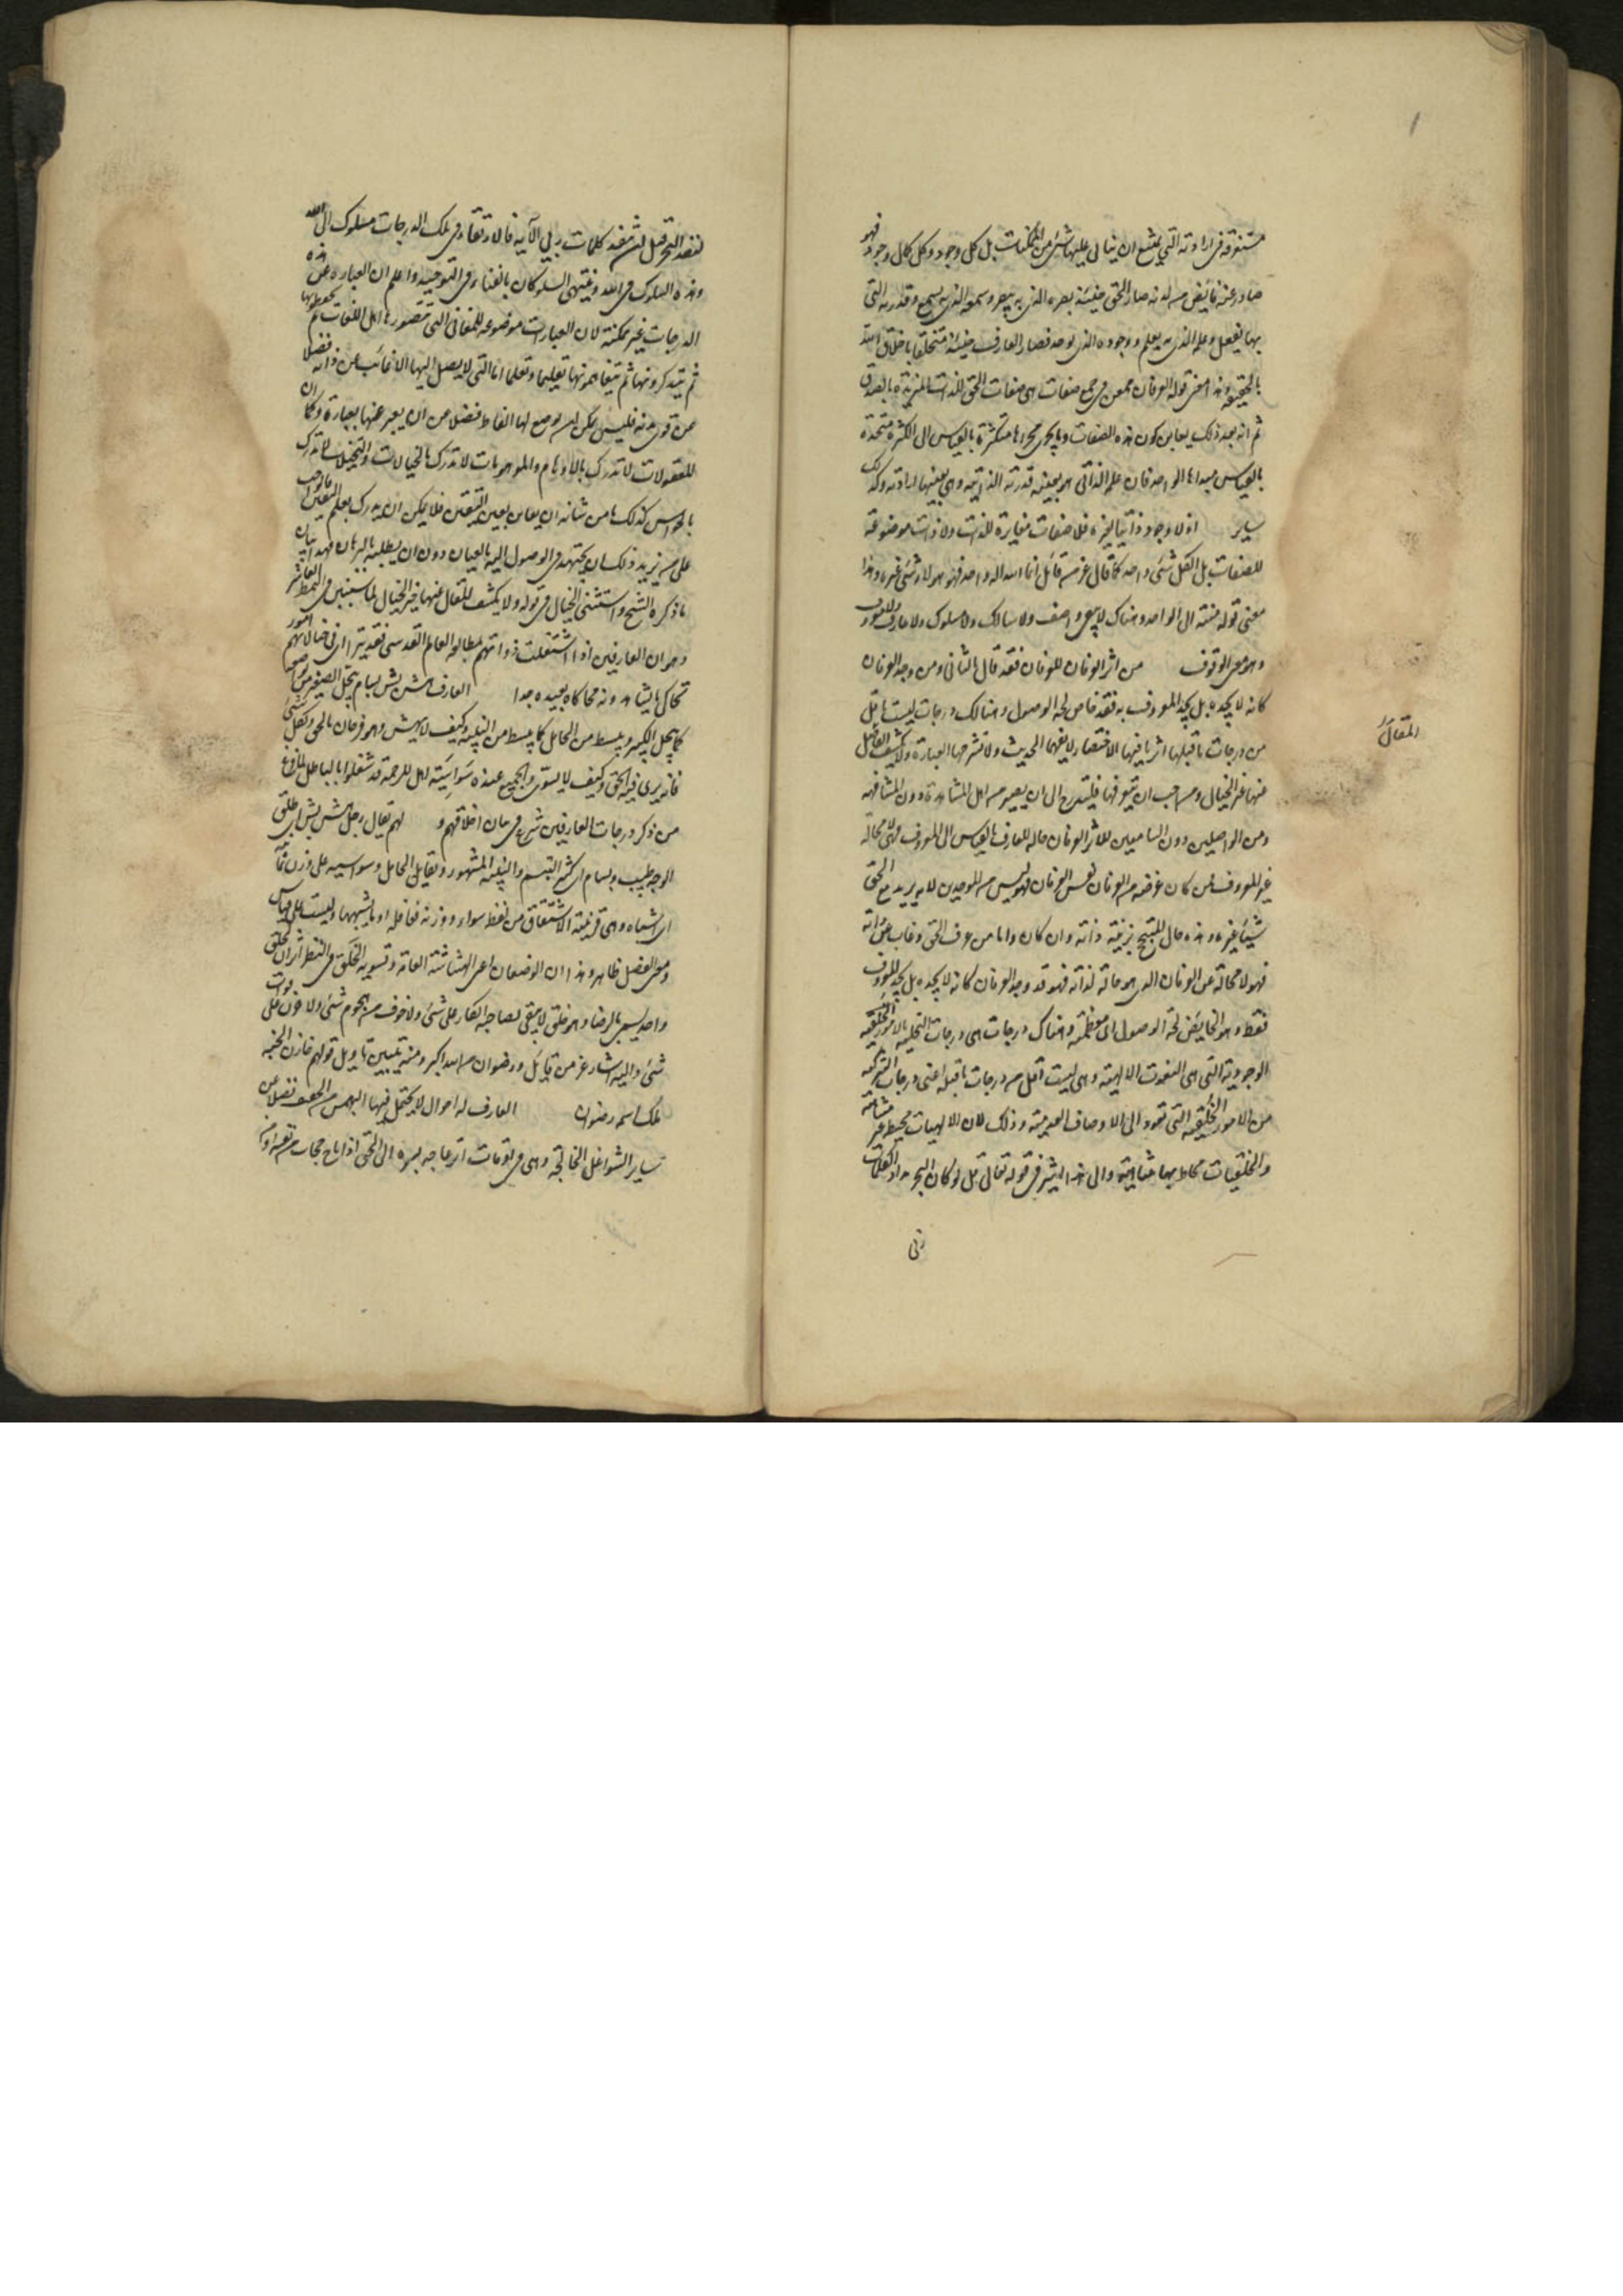 مستغرقة فى ارادته التى يمتنع ان يتابى عليها شئ من الممكنات بل كل وجود وكل كمال وجود فهو
صادر عنه فائض من لدنه صار الحق حينئذ بصره الذى به يبصر وسمعه الذى به يسمع وقدرته التى
بها يفعل وعلمه الذى به يعلم ووجوده الذى به يوجد فصار العارف حينئذ متخلقا باخلاق الله
بالحقيقه وهذا معنى قوله العرفان ممعن فى جمع صفات هى صفات الحق للذات المريدة بالصدق
ثم انه بعد ذلك يعاين كون هذه الصفات وما يجرى مجراها متكثرة بالقياس الى الكثرة متحدة
بالقياس الى مبداها الواحد فان علمه الذاتى هو بعينه قدرته الذاتيه وهى بعينها ارادته وكذلك
سايرها اذ لا وجود ذاتيا لغيره فلا صفات مغايرة للذات ولا ذات موضوعة
للصفات بل الكل شئ واحد كما قال عز من قائل انما الله اله واحد فهو هو لا شئ غيره وهذا
معنى قوله منته الى الواحد وهناك لا يبقى واصف ولا سالك ولا سلوك ولا عارف ولا معروف
وهو مقام الوقوف من اثر العرفان للعرفان فقد قال بالثانى ومن وجد العرفان
كانه لا يجده بل يجد المعروف به فقد خاض لجة الوصول وهنالك درجات ليست باقل
من درجات ما قبلها اثرنا فيها الاختصار لا يفهمها الحديث ولا تشرحها العبارة ولا يكشف المقال
المقال
عنها غير الخيال ومن احب ان يتعرفها فليتدرج الى ان يصير من اهل المشاهدة دون المشافهة
ومن الواصلين دون السامعين للاثر العرفان حاله للعارف بالقياس الى المعروف فهى لا محالة
غير المعروف فمن كان غرضه من العرفان نفس العرفان فهو ليس من الموحدين لانه يريد مع الحق
شيئا غيره وهذه حال المتبجح بزينة ذاته وان كان واما من عرف الحق وغاب عن ذاته
فهو لا محالة عن العرفان الذى هو حالة لذاته فهو قد وجد العرفان كانه لا يجده بل يجد المعروف
فقط وهو الخايض لجة الوصول اى معظمه وهناك درجات هى درجات التحلية بالامور
الوجودية التى هى النعوت الالهية وهى ليست اقل من درجات ما قبله اعنى درجات التزكية
من الامور الخلقية التى تعود الى الاوصاف العدمية وذلك لان الالهيات محيطة غير متناهية
والخلقيات محاط بها متناهية والى هذا اشير فى قوله تعالى قل لو كان البحر مدادا لكلمات
ربى
لنفد البحر قبل ان تنفد كلمات ربى الآية فالارتقاء فى تلك الدرجات سلوك الى الله
وهذه سلوك فى الله وينتهى السلوكان بالفناء فى التوحيد واعلم ان العبارة عن هذه
الدرجات غير ممكنة لان العبارات موضوعة للمعانى التى يتصورها اهل اللغات ثم يحفظونها
ثم يتذكرونها ثم يتفاهمونها تعليما وتعلما اما التى لا يصل اليها الا غائب عن ذاته فضلا
عن قوى بدنه فليس يمكن ان يوضع لها الفاظ فضلا من ان يعبر عنها بعبارة وكما ان
المعقولات لا تدرك بالاوهام والموهومات لا تدرك بالخيالات والمتخيلات لا تدرك
بالحواس كذلك ما من شانه ان يعاين بعين اليقين فلا يمكن ان يدرك بعلم اليقين فالواجب
على من يريد ذلك ان يجتهد فى الوصول اليه بالعيان دون ان يطلبه بالبرهان فهذا بيان
ما ذكره الشيخ واستثنى الخيال فى قوله ولا يكشف المقال عنها غير الخيال لما سيبين فى النمط العاشر
وهو ان العارفين اذا اشتغلت ذواتهم بمطالعة العالم القدسى فقد يتراى فى خيالاتهم امور
تحاكى ما يشاهدونه محاكاة بعيدة جدا العارف هش بش بسام يبجل الصغير من تواضعه
كما يبجل الكبير وينبسط من الخامل كما ينبسط من النبيه وكيف لا يهش وهو فرحان بالحق وبكل شئ
فانه يرى فيه الحق وكيف لا يسوى والجميع عنده سواسية اهل الرحمة قد شغلوا بالباطل لما فرغ
من ذكر درجات العارفين شرع فى بيان اخلاقهم و لهم يقال رجل هش بش اى طلق
الوجه طيب وبسام اى كثير التبسم والنبيه المشهور ويقابل الخامل وسواسيه على وزن ثمانية
اى اشباه وهى قريبة الاشتقاق من لفظ سواء ووزنه فعافلة او ما يشبهها وليست على قياس
ومعنى الفصل ظاهر وهذان الوصفان اعنى الهشاشة العامة وتسوية الخلق فى النظر اثران لخلق
واحد يسمى بالرضا وهو خلق لا يبقى لصاحبه انكار على شئ ولا خوف من هجوم شئ ولا حزن على فوات
شئ واليه اشار عز من قائل ورضوان من الله اكبر ومنه يتبين تاويل قولهم خازن الجنة
ملك اسمه رضوان العارف له احوال لا يحتمل فيها الهمس من الحفيف فضلا عن
ساير الشواغل الخالجة وهى فى اوقات انزعاجه بسره الى الحق اذا تاح حجاب من نفسه او من